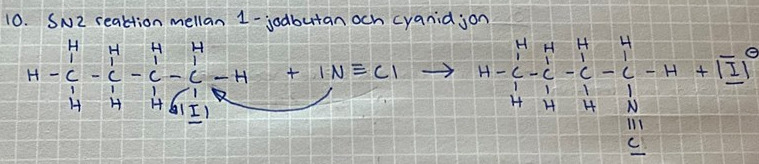 10. SN2 reaktion mellan 1-jodbutan och cyanidjon
H H H H H H H H ⊖
H-C-C-C-C-H + |N≡C| → H-C-C-C-C-H + |I|
H H H |I| H H H N
|||
C